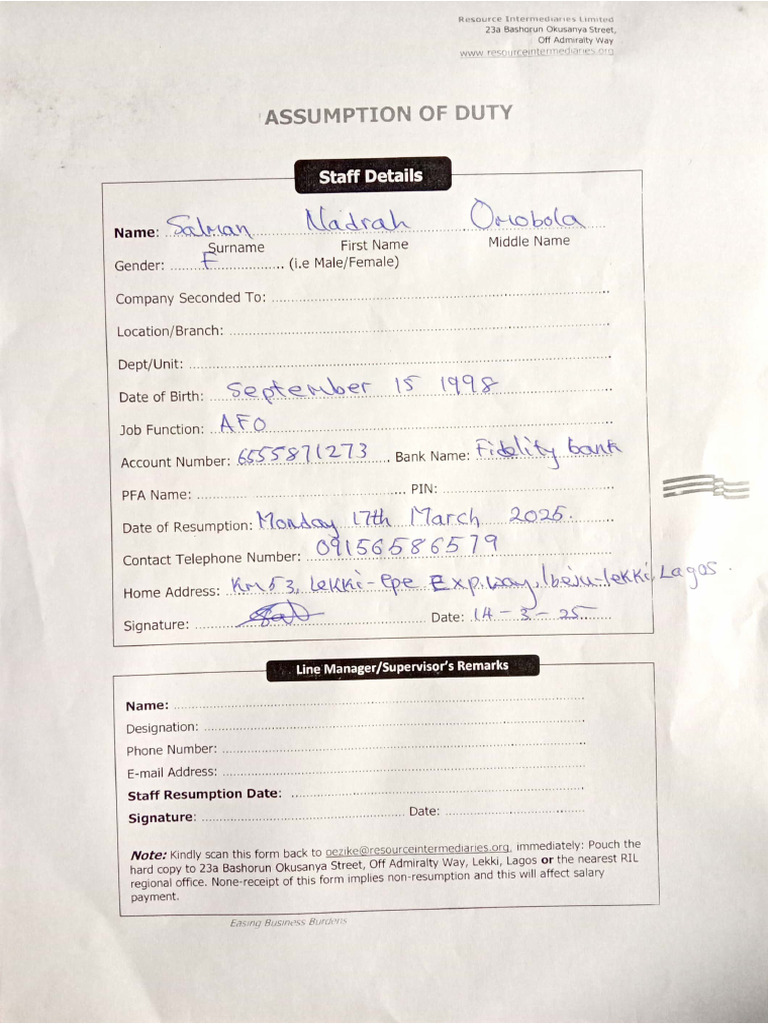 Resource Intermediaries Limited
23a Bashorun Okusanya Street,
Off Admiralty Way
www.resourceintermediaries.org
ASSUMPTION OF DUTY
Staff Details
Name: Salman Nadrah Omobola
Surname First Name Middle Name
Gender: F (i.e Male/Female)
Company Seconded To:
Location/Branch:
Dept/Unit:
Date of Birth: September 15 1998
Job Function: AFO
Account Number: 6555871273 Bank Name: Fidelity bank
PFA Name: PIN:
Date of Resumption: Monday 17th March 2025.
Contact Telephone Number: 09156586579
Home Address: KM53, Lekki-epe Exp.way, Ibeju-lekki, Lagos.
Signature: Date: 14-3-25
Line Manager/Supervisor's Remarks
Name:
Designation:
Phone Number:
E-mail Address:
Staff Resumption Date:
Signature: Date:
Note: Kindly scan this form back to oezike@resourceintermediaries.org, immediately: Pouch the
hard copy to 23a Bashorun Okusanya Street, Off Admiralty Way, Lekki, Lagos or the nearest RIL
regional office. None-receipt of this form implies non-resumption and this will affect salary
payment.
Easing Business Burdens